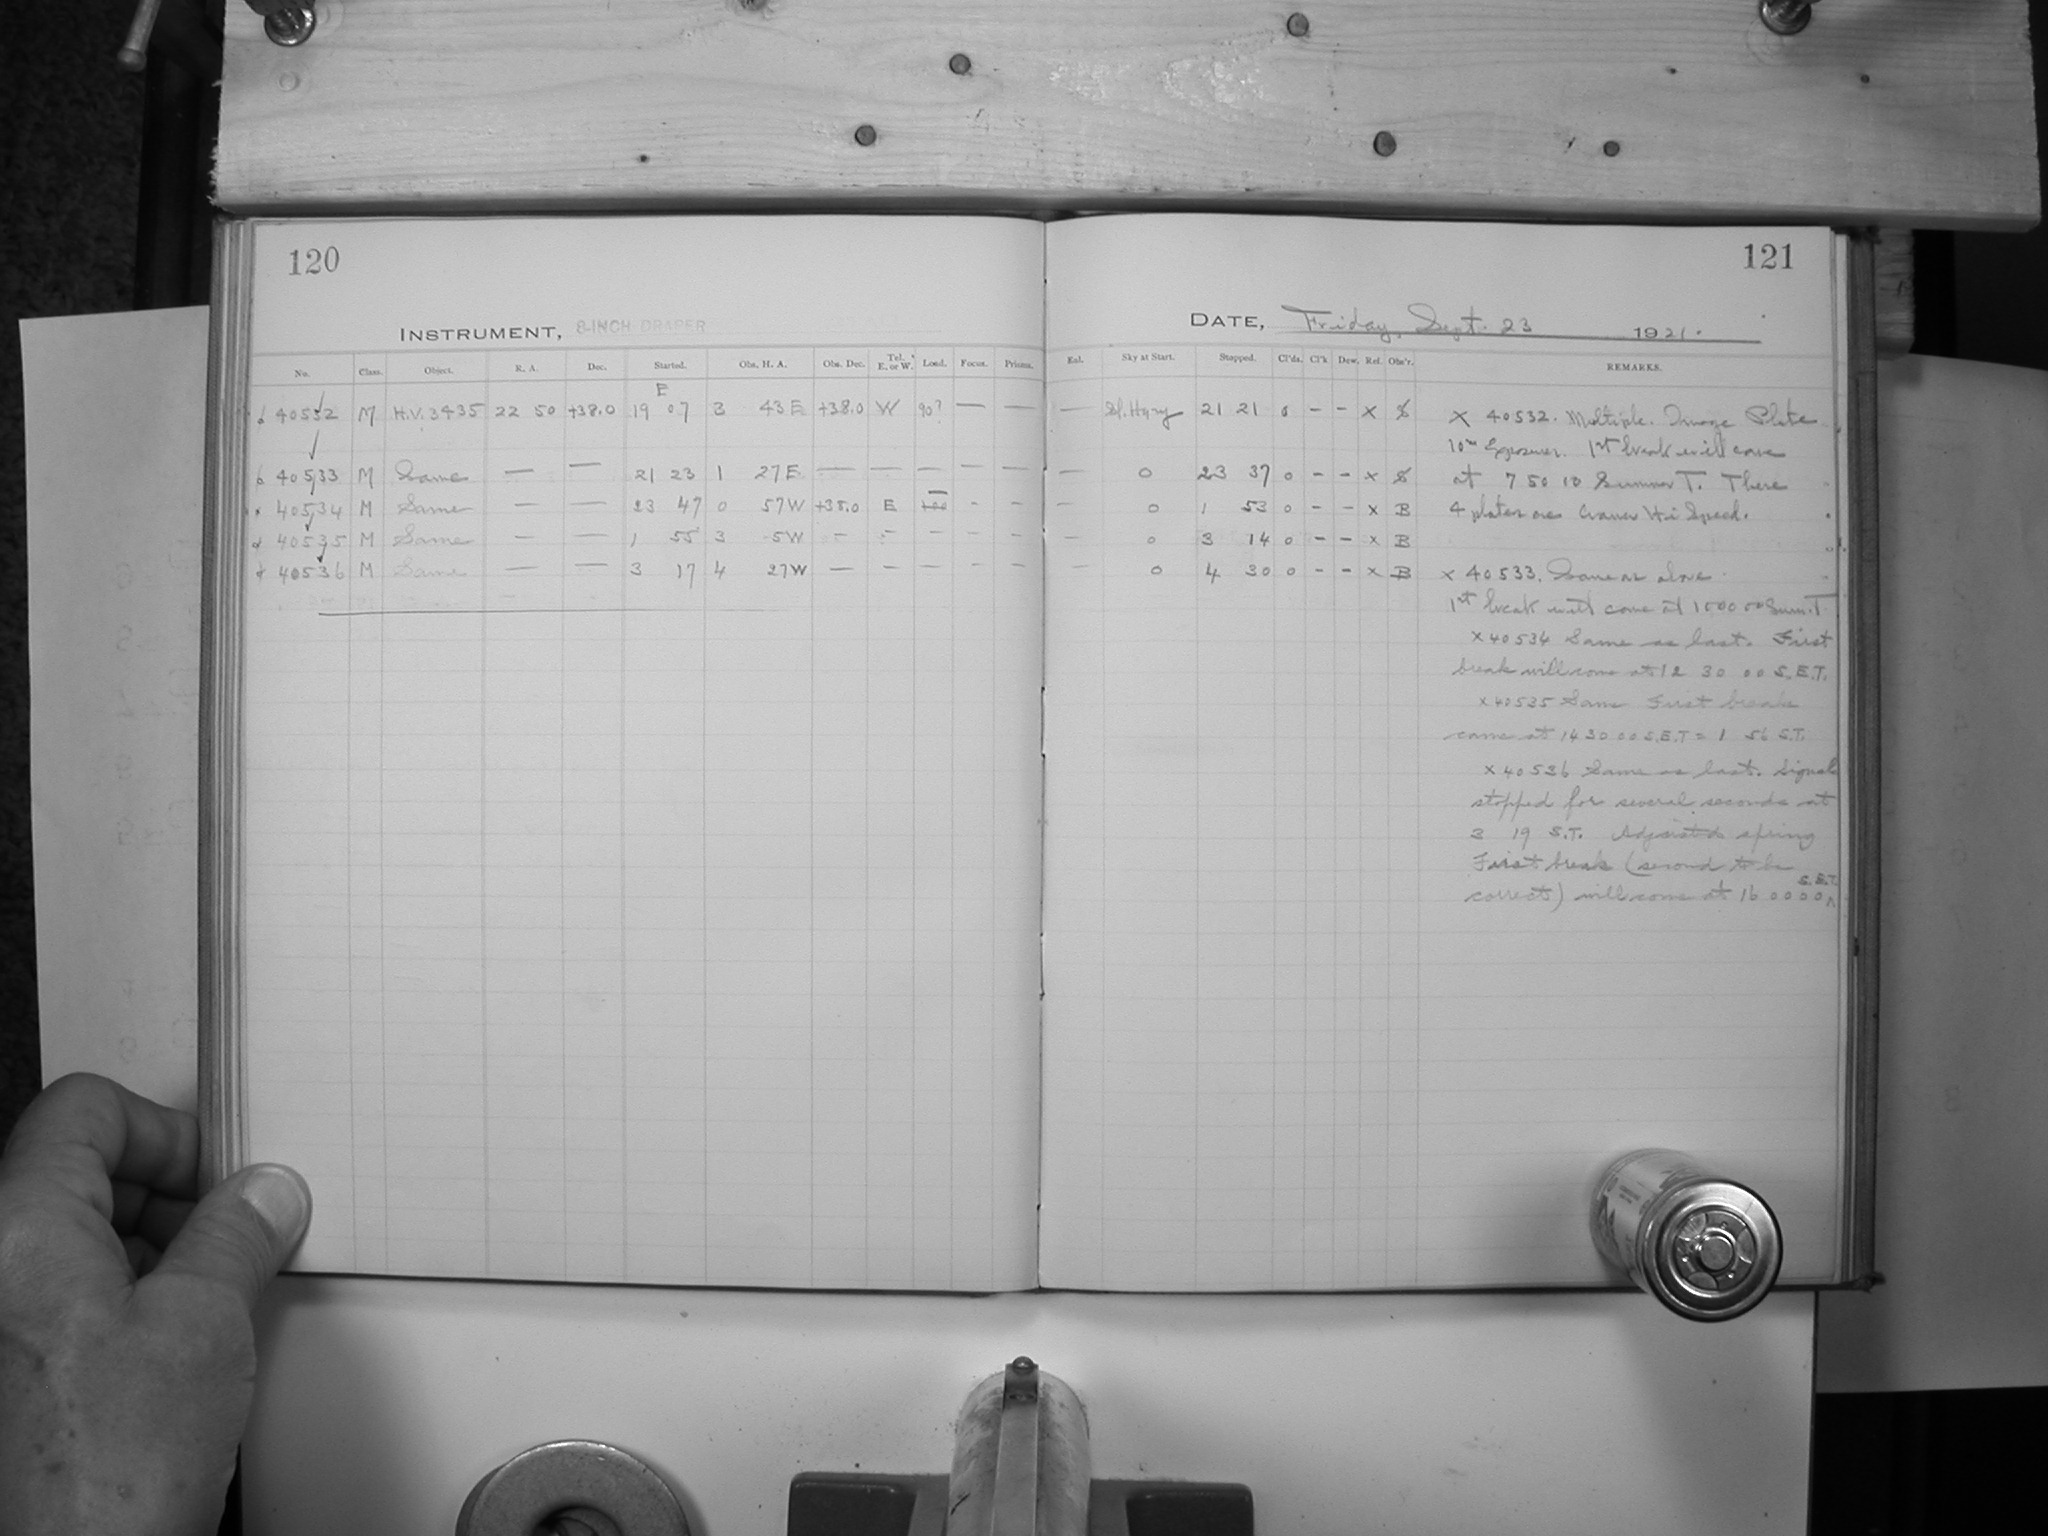 120
INSTRUMENT, 8-INCH DRAPER
No. Class. Object. R. A. Dec. Started. Obs. H. A. Obs. Dec. Tel. E. or W. Load. Focus. Prisms.
E
40532 M H.V. 3435 22 50 +38.0 19 07 3 43 E +38.0 W 90? — —
40533 M Same — — 21 23 1 27 E — — — — —
40534 M Same — — 23 47 0 57 W +38.0 E - -
40535 M Same — — 1 55 3 5 W — — — — —
40536 M Same — — 3 17 4 27 W — — — — —
121
DATE, Friday, Sept. 23 1921.
Exl. Sky at Start. Stopped. Cl'ds. Cl'k Dew. Rel. Obs'r. REMARKS.
— Sl. Hazy 21 21 0 - - x S
— 0 23 37 0 - - x S
— 0 1 53 0 - - x B
— 0 3 14 0 - - x B
— 0 4 30 0 - - x B
x 40532. Multiple. Image Plate
10m Exposures. 1st break will come
at 7 50 10 Summer T. These
4 plates are Cramer Hi Speed.
x 40533. Same as above.
1st break will come at 10 00 00 Sum. T.
x 40534 Same as last. First
break will come at 12 30 00 S.E.T.
x 40535 Same First break
came at 14 30 00 S.E.T = 1 56 S.T.
x 40536 Same as last. Signals
stopped for several seconds at
3 19 S.T. Adjusted spring
First break (second to be
correct) will come at 16 00 00 S.E.T.